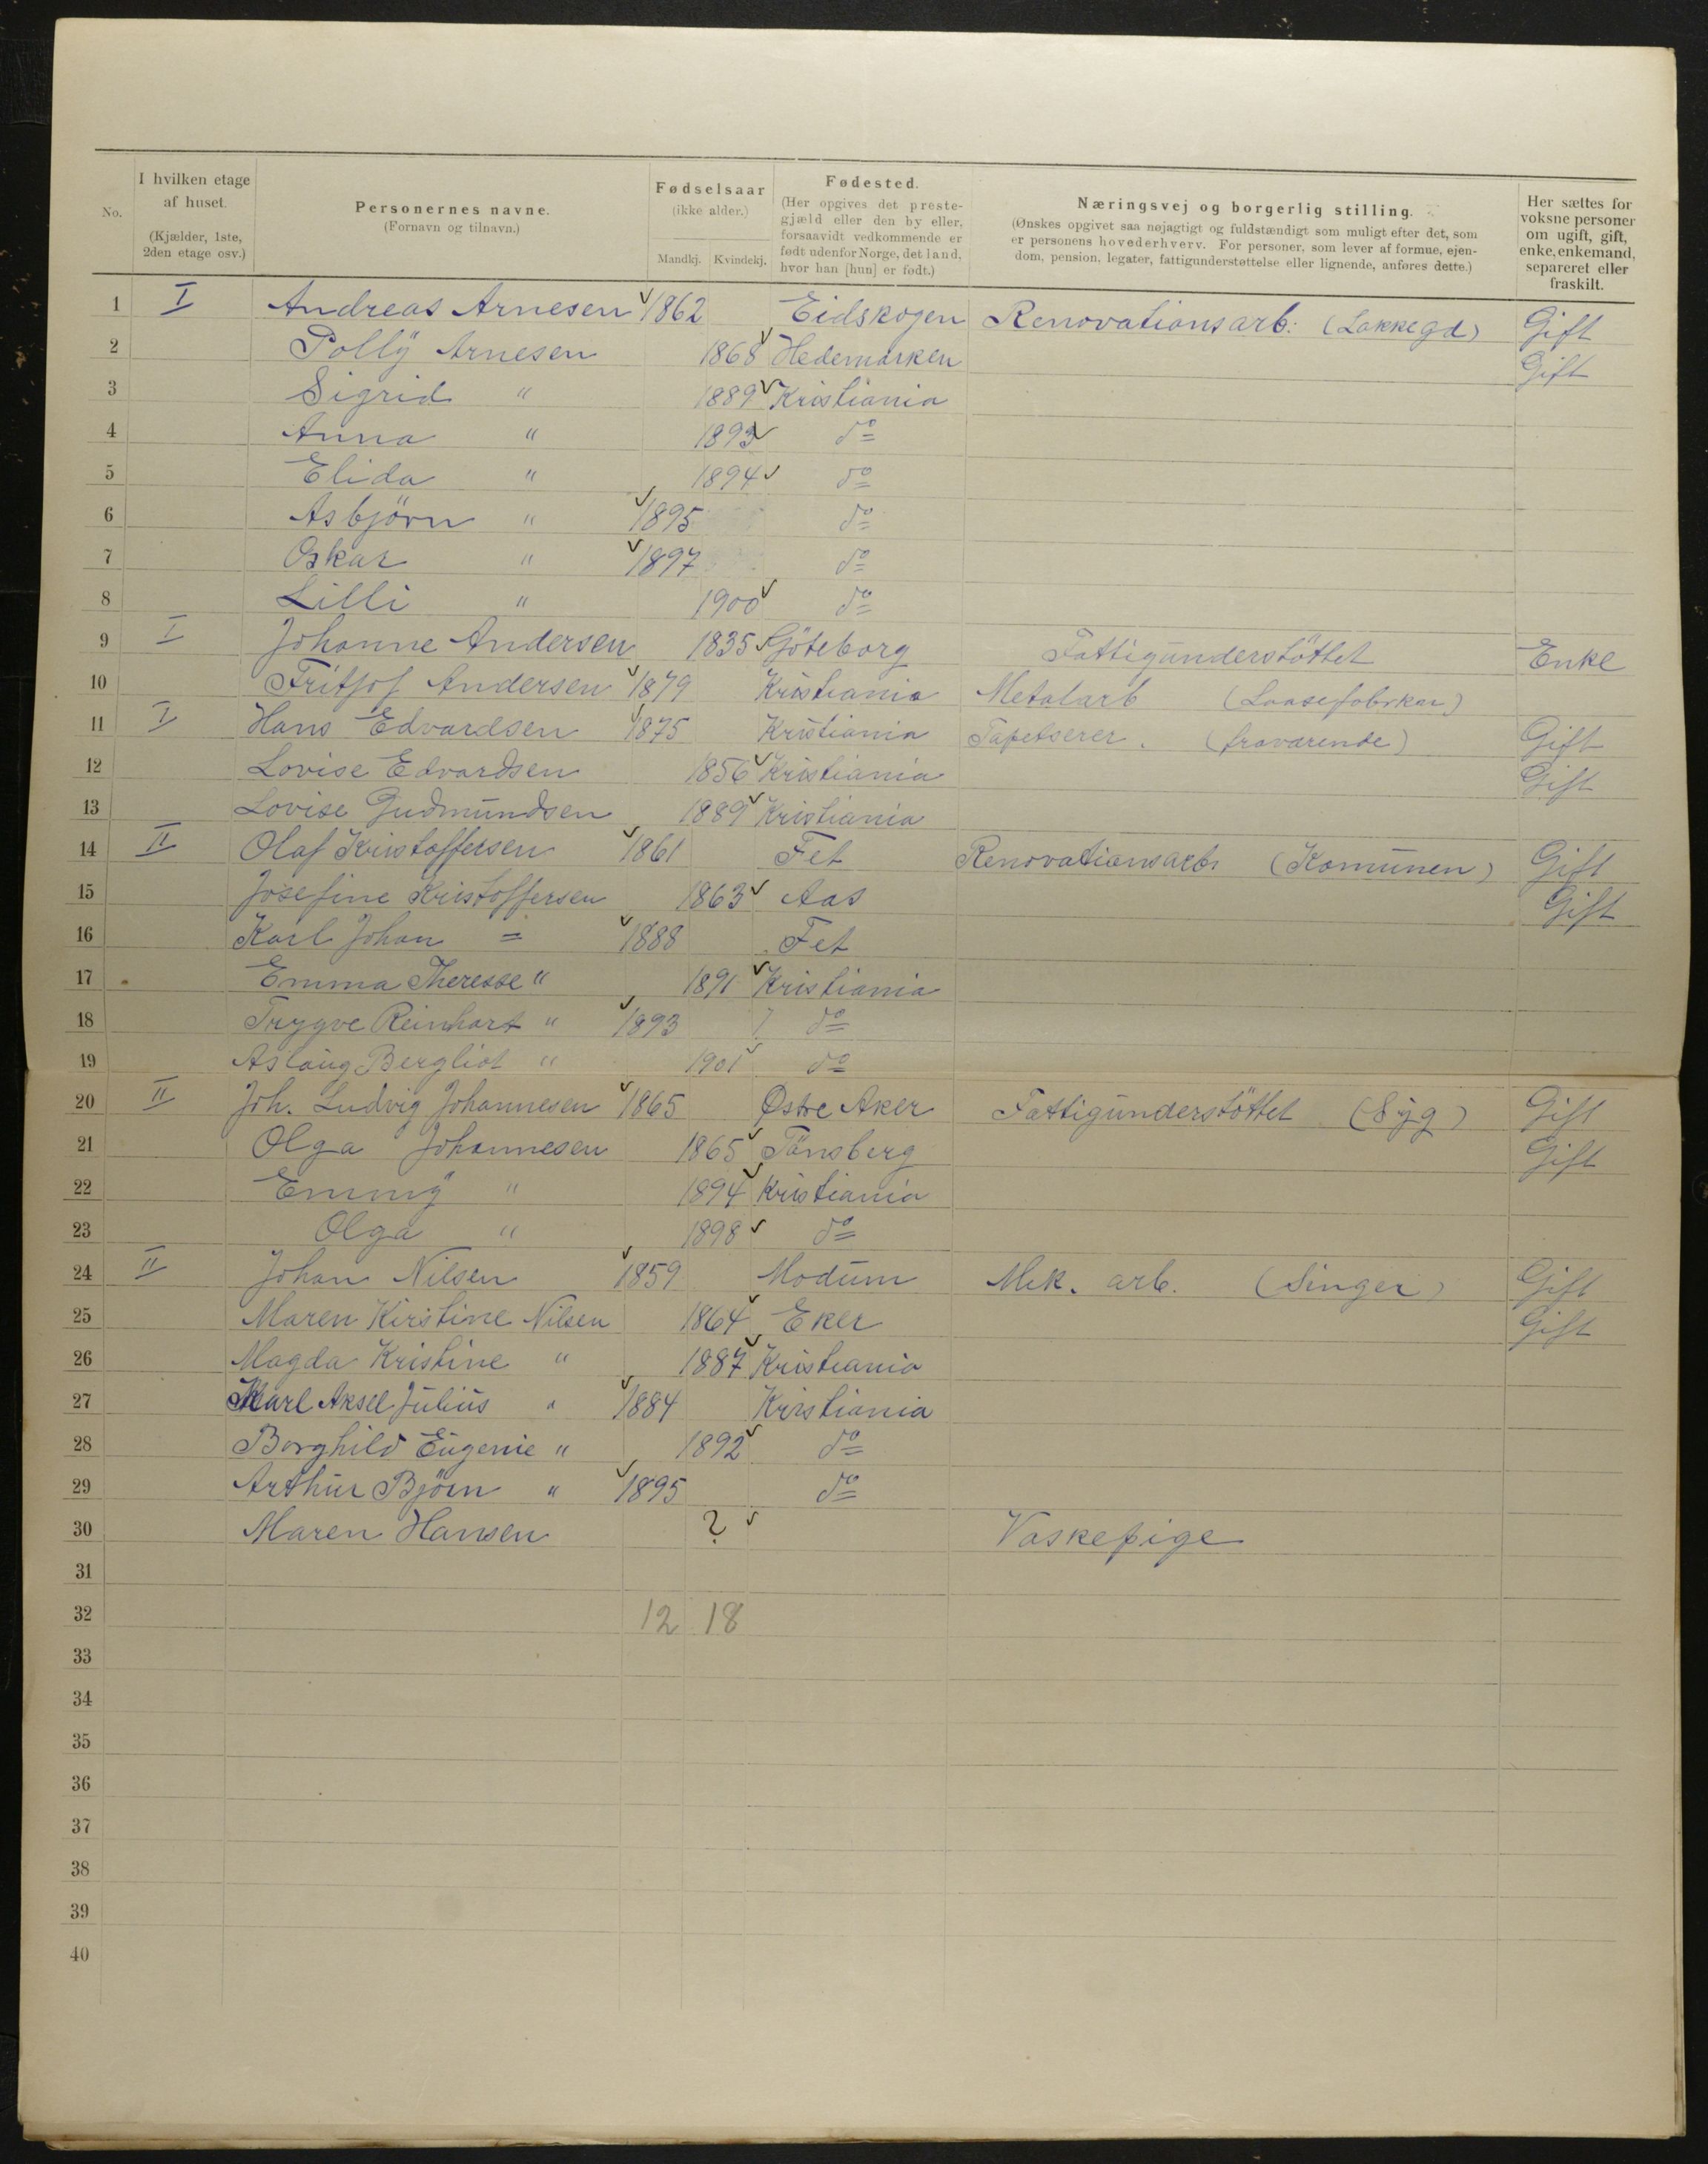 No. I hvilken etage af huset. (Kjælder, 1ste, 2den etage osv.) Personernes navne. (Fornavn og tilnavn.) Fødselsaar (ikke alder.) Mandkj. Kvindekj. Fødested. (Her opgives det prestegjæld eller den by eller, forsaavidt vedkommende er født udenfor Norge, det land, hvor han [hun] er født.) Næringsvej og borgerlig stilling. (Ønskes opgivet saa nøjagtigt og fuldstændigt som muligt efter det, som er personens hovederhverv. For personer, som lever af formue, ejendom, pension, legater, fattigunderstøttelse eller lignende, anføres dette.) Her sættes for voksne personer om ugift, gift, enke, enkemand, separeret eller fraskilt.
1 I Andreas Arnesen 1862 Eidskogen Renovationsarb: (Lakkegd) Gift
2 Polly Arnesen 1868 Hedemarken Gift
3 Sigrid " 1889 Kristiania
4 Anna " 1893 do
5 Elida " 1894 do
6 Asbjörn " 1895 do
7 Oskar " 1897 do
8 Lilli " 1900 do
9 I Johanne Andersen 1835 Göteborg Fattigunderstöttet Enke
10 Fritjof Andersen 1879 Kristiania Metalarb (Laasefabrikar)
11 I Hans Edvardsen 1875 Kristiania Tapetserer. (fraværende) Gift
12 Lovise Edvardsen 1856 Kristiania Gift
13 Lovise Gudmundsen 1889 Kristiania
14 II Olaf Kristoffersen 1861 Fet Renovationsarb. (Komunen) Gift
15 Josefine Kristoffersen 1863 Aas Gift
16 Karl Johan = 1888 Fet
17 Emma Therese " 1891 Kristiania
18 Trygve Reinhart " 1893 do
19 Aslaug Bergliot " 1901 do
20 II Joh. Ludvig Johannesen 1865 Østre Aker Fattigunderstöttet (Syg) Gift
21 Olga Johannesen 1865 Tönsberg Gift
22 Emmy " 1894 Kristiania
23 Olga " 1898 do
24 II Johan Nilsen 1859 Modum Mek. arb. (Singer) Gift
25 Maren Kirstine Nilsen 1864 Eker Gift
26 Magda Kristine " 1887 Kristiania
27 Karl Aksel Julius " 1884 Kristiania
28 Borghild Eugenie " 1892 do
29 Arthur Björn " 1895 do
30 Maren Hansen ? Vaskepige
31
32 12 18
33
34
35
36
37
38
39
40